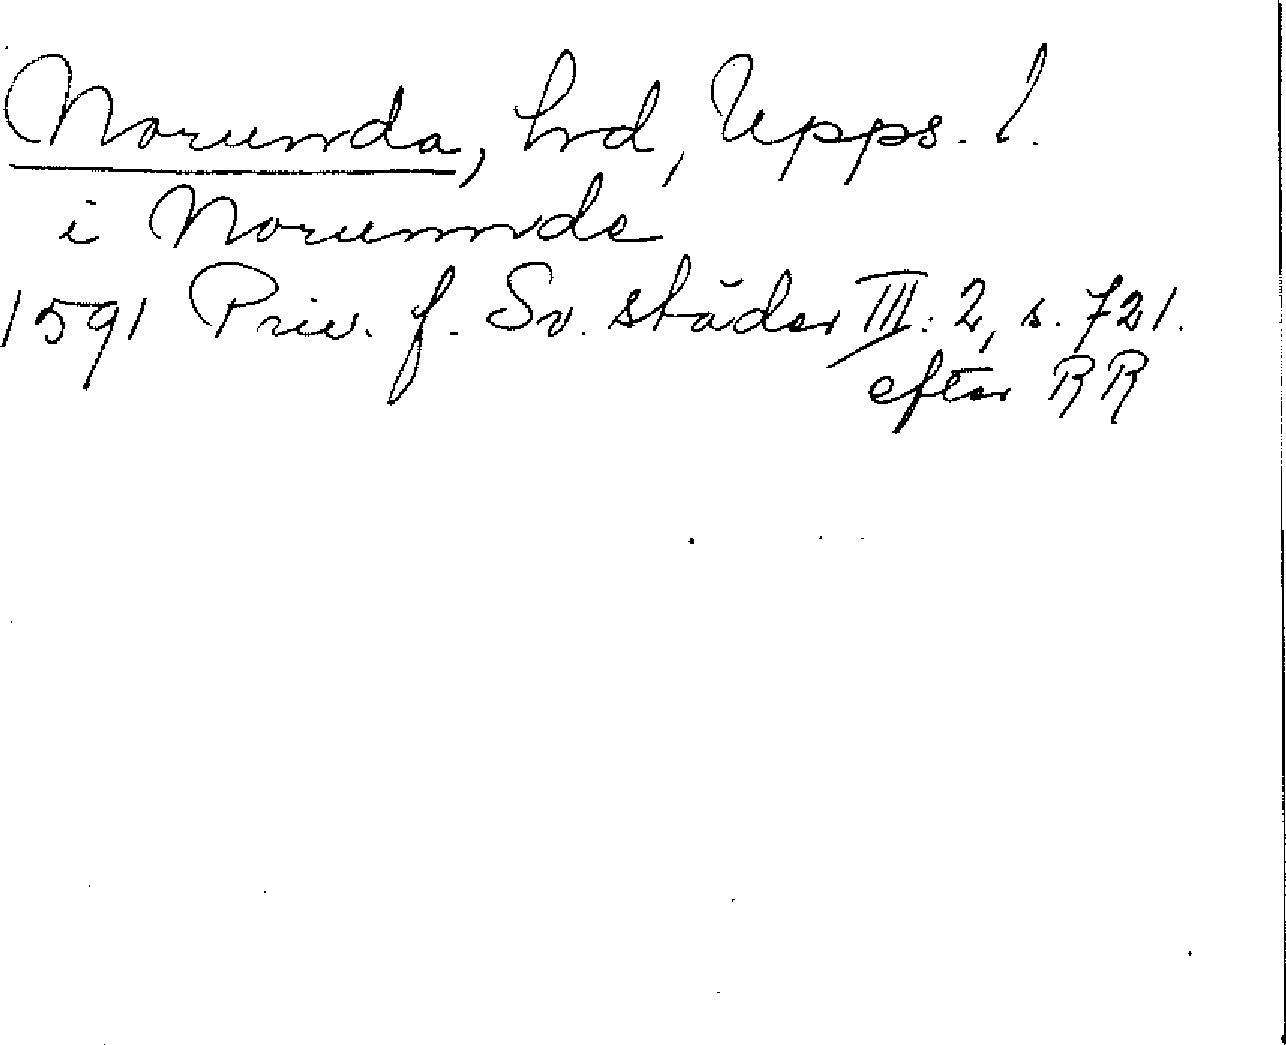 Norunda, hrd, Upps. l.
i Norunnde
1591 Priv. f. Sv. städer III: 2, s. 721.
efter RR